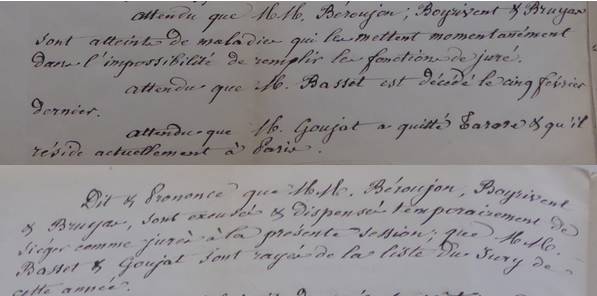 attendu que M.M. Béroujon, Boyrivent & Bruyas
sont atteints de maladie qui les mettent momentanément
dans l'impossibilité de remplir les fonction de juré.
attendu que M. Basset est décédé le cinq février
dernier.
attendu que M. Goujat a quitté Tarare & qu'il
réside actuellement à Paris.
Dit & Prononce que M.M. Béroujon, Boyrivent
& Bruyas, sont excusés & dispensés temporairement de
siéger comme jurés à la présente session; que M.M.
Basset & Goujat sont rayés de la liste du Jury de
cette année.